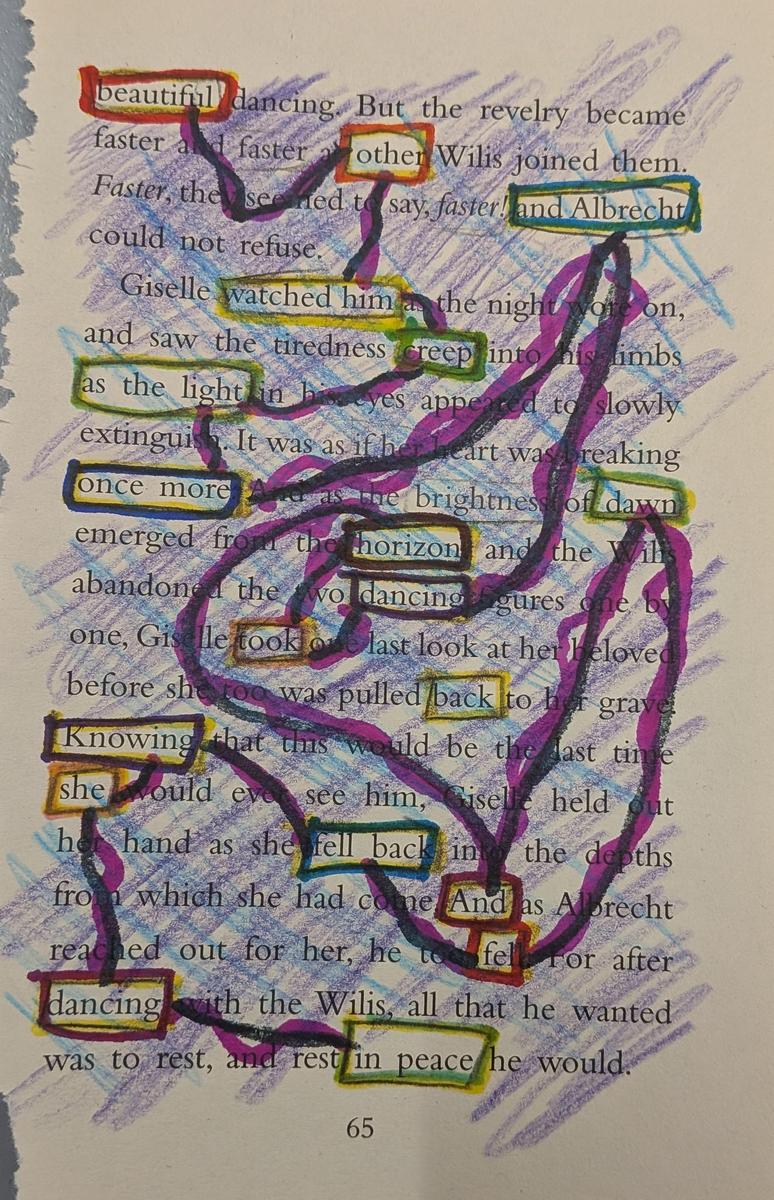 beautiful dancing. But the revelry became
faster and faster as other Wilis joined them.
Faster, they seemed to say, faster! and Albrecht
could not refuse.
Giselle watched him as the night wore on,
and saw the tiredness creep into his limbs
as the light in his eyes appeared to slowly
extinguish. It was as if her heart was breaking
once more. And as the brightness of dawn
emerged from the horizon and the Wilis
abandoned the two dancing figures one by
one, Giselle took one last look at her beloved
before she too was pulled back to her grave.
Knowing that this would be the last time
she would ever see him, Giselle held out
her hand as she fell back into the depths
from which she had come. And as Albrecht
reached out for her, he too fell. For after
dancing with the Wilis, all that he wanted
was to rest, and rest in peace he would.
65